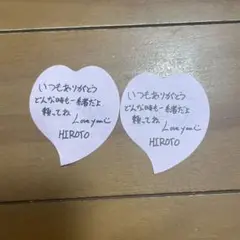 いつもありがとう
どんな時も一緒だよ
頼ってね
Love you
HIROTO
いつもありがとう
どんな時も一緒だよ
頼ってね
Love you
HIROTO